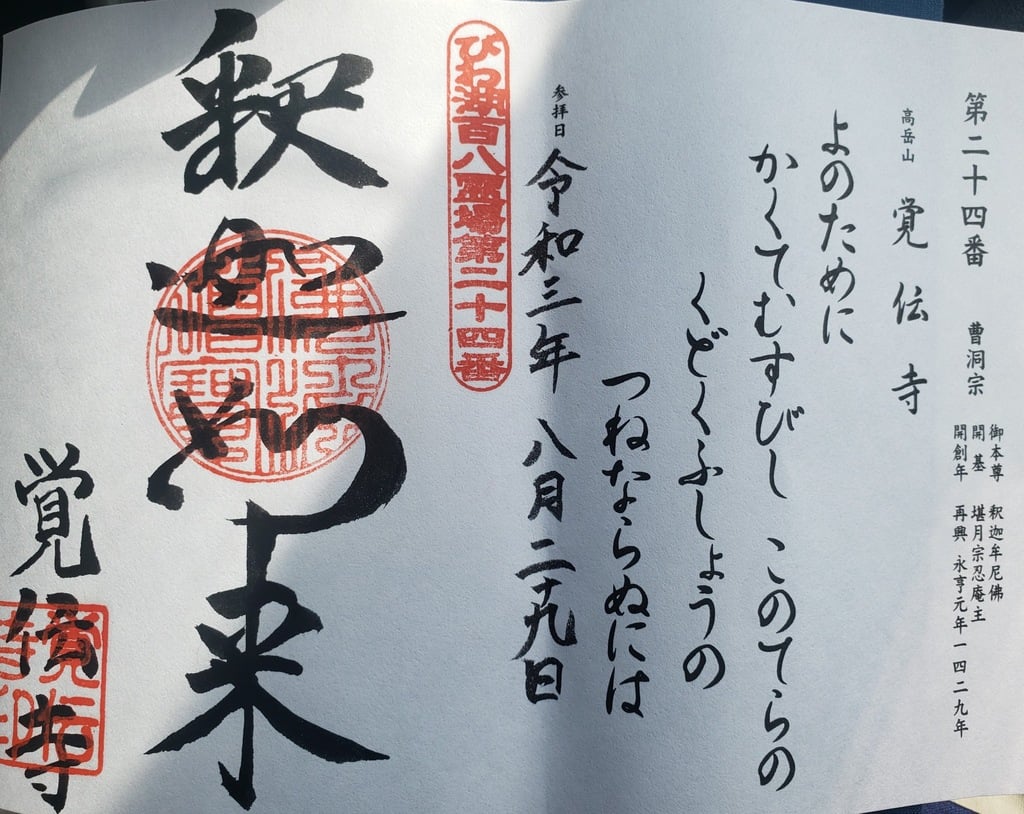 第二十四番 曹洞宗
御本尊 釈迦牟尼佛
開基 堪月宗忍庵主
開創年 再興 永亨元年一四二九年
高岳山 覚伝寺
よのために
かくてむすびし このてらの
くどくふしょうの
つねならぬには
参拝日 令和三年八月二十九日
びわ湖百八霊場第二十四番
釈迦如来
佛法僧寶
覚傳寺